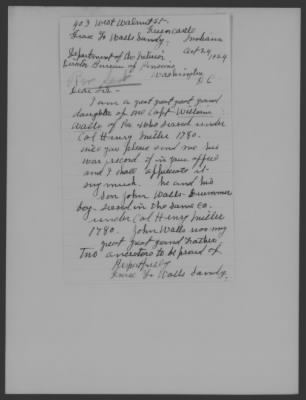 403 West Walnut St.
Greencastle
Grace Walls Sandy, Indiana
Oct 24, 1924
Department of the Interior
Bureau of Pensions
Washington
D.C.
Dear Sir -
I am a great great great grand
daughter of one Capt William
Walls of Pa who served under
Col Henry Miller 1780.
will you please send me his
war record if in your office
and I shall appreciate it
very much. He and his
son John Walls - Drummer
boy - served in the same co.
under Col Henry Miller
1780. John Walls was my
great great grand father,
Two ancestors to be proud of
Respectfully
Walls Sandy.